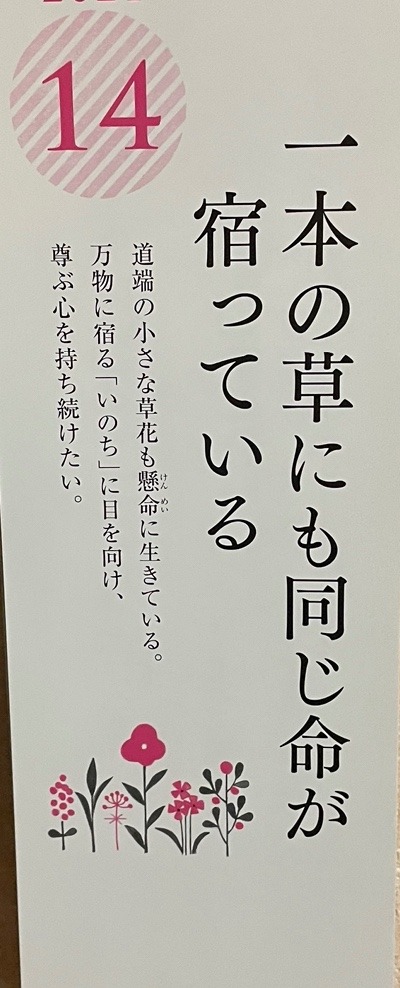 14
一本の草にも同じ命が
宿っている
道端の小さな草花も懸命に生きている。
けんめい
万物に宿る「いのち」に目を向け、
尊ぶ心を持ち続けたい。